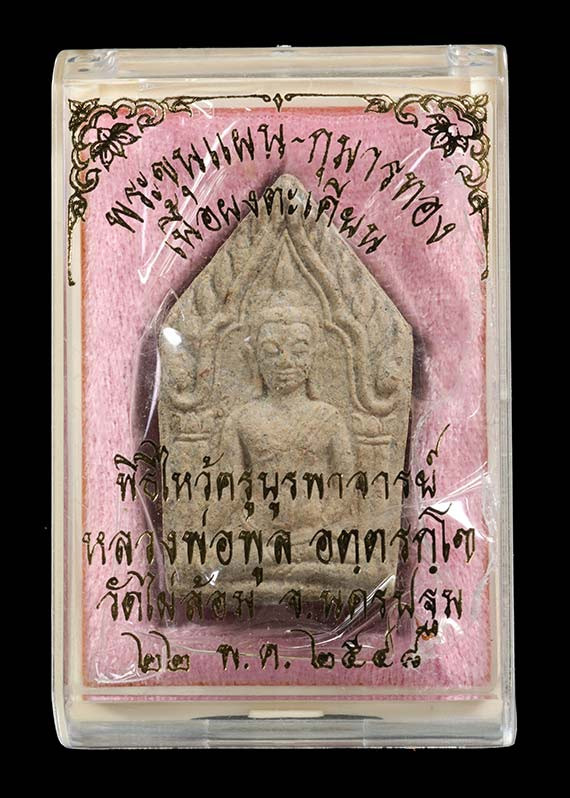 พระขุนแผน-กุมารทอง
เนื้อผงตะเคียน
พิธีไหว้ครูบูรพาจารย์
หลวงพ่อพูล อตฺตรกฺโข
วัดไผ่ล้อม จ.นครปฐม
๒๒ พ.ค. ๒๕๔๘